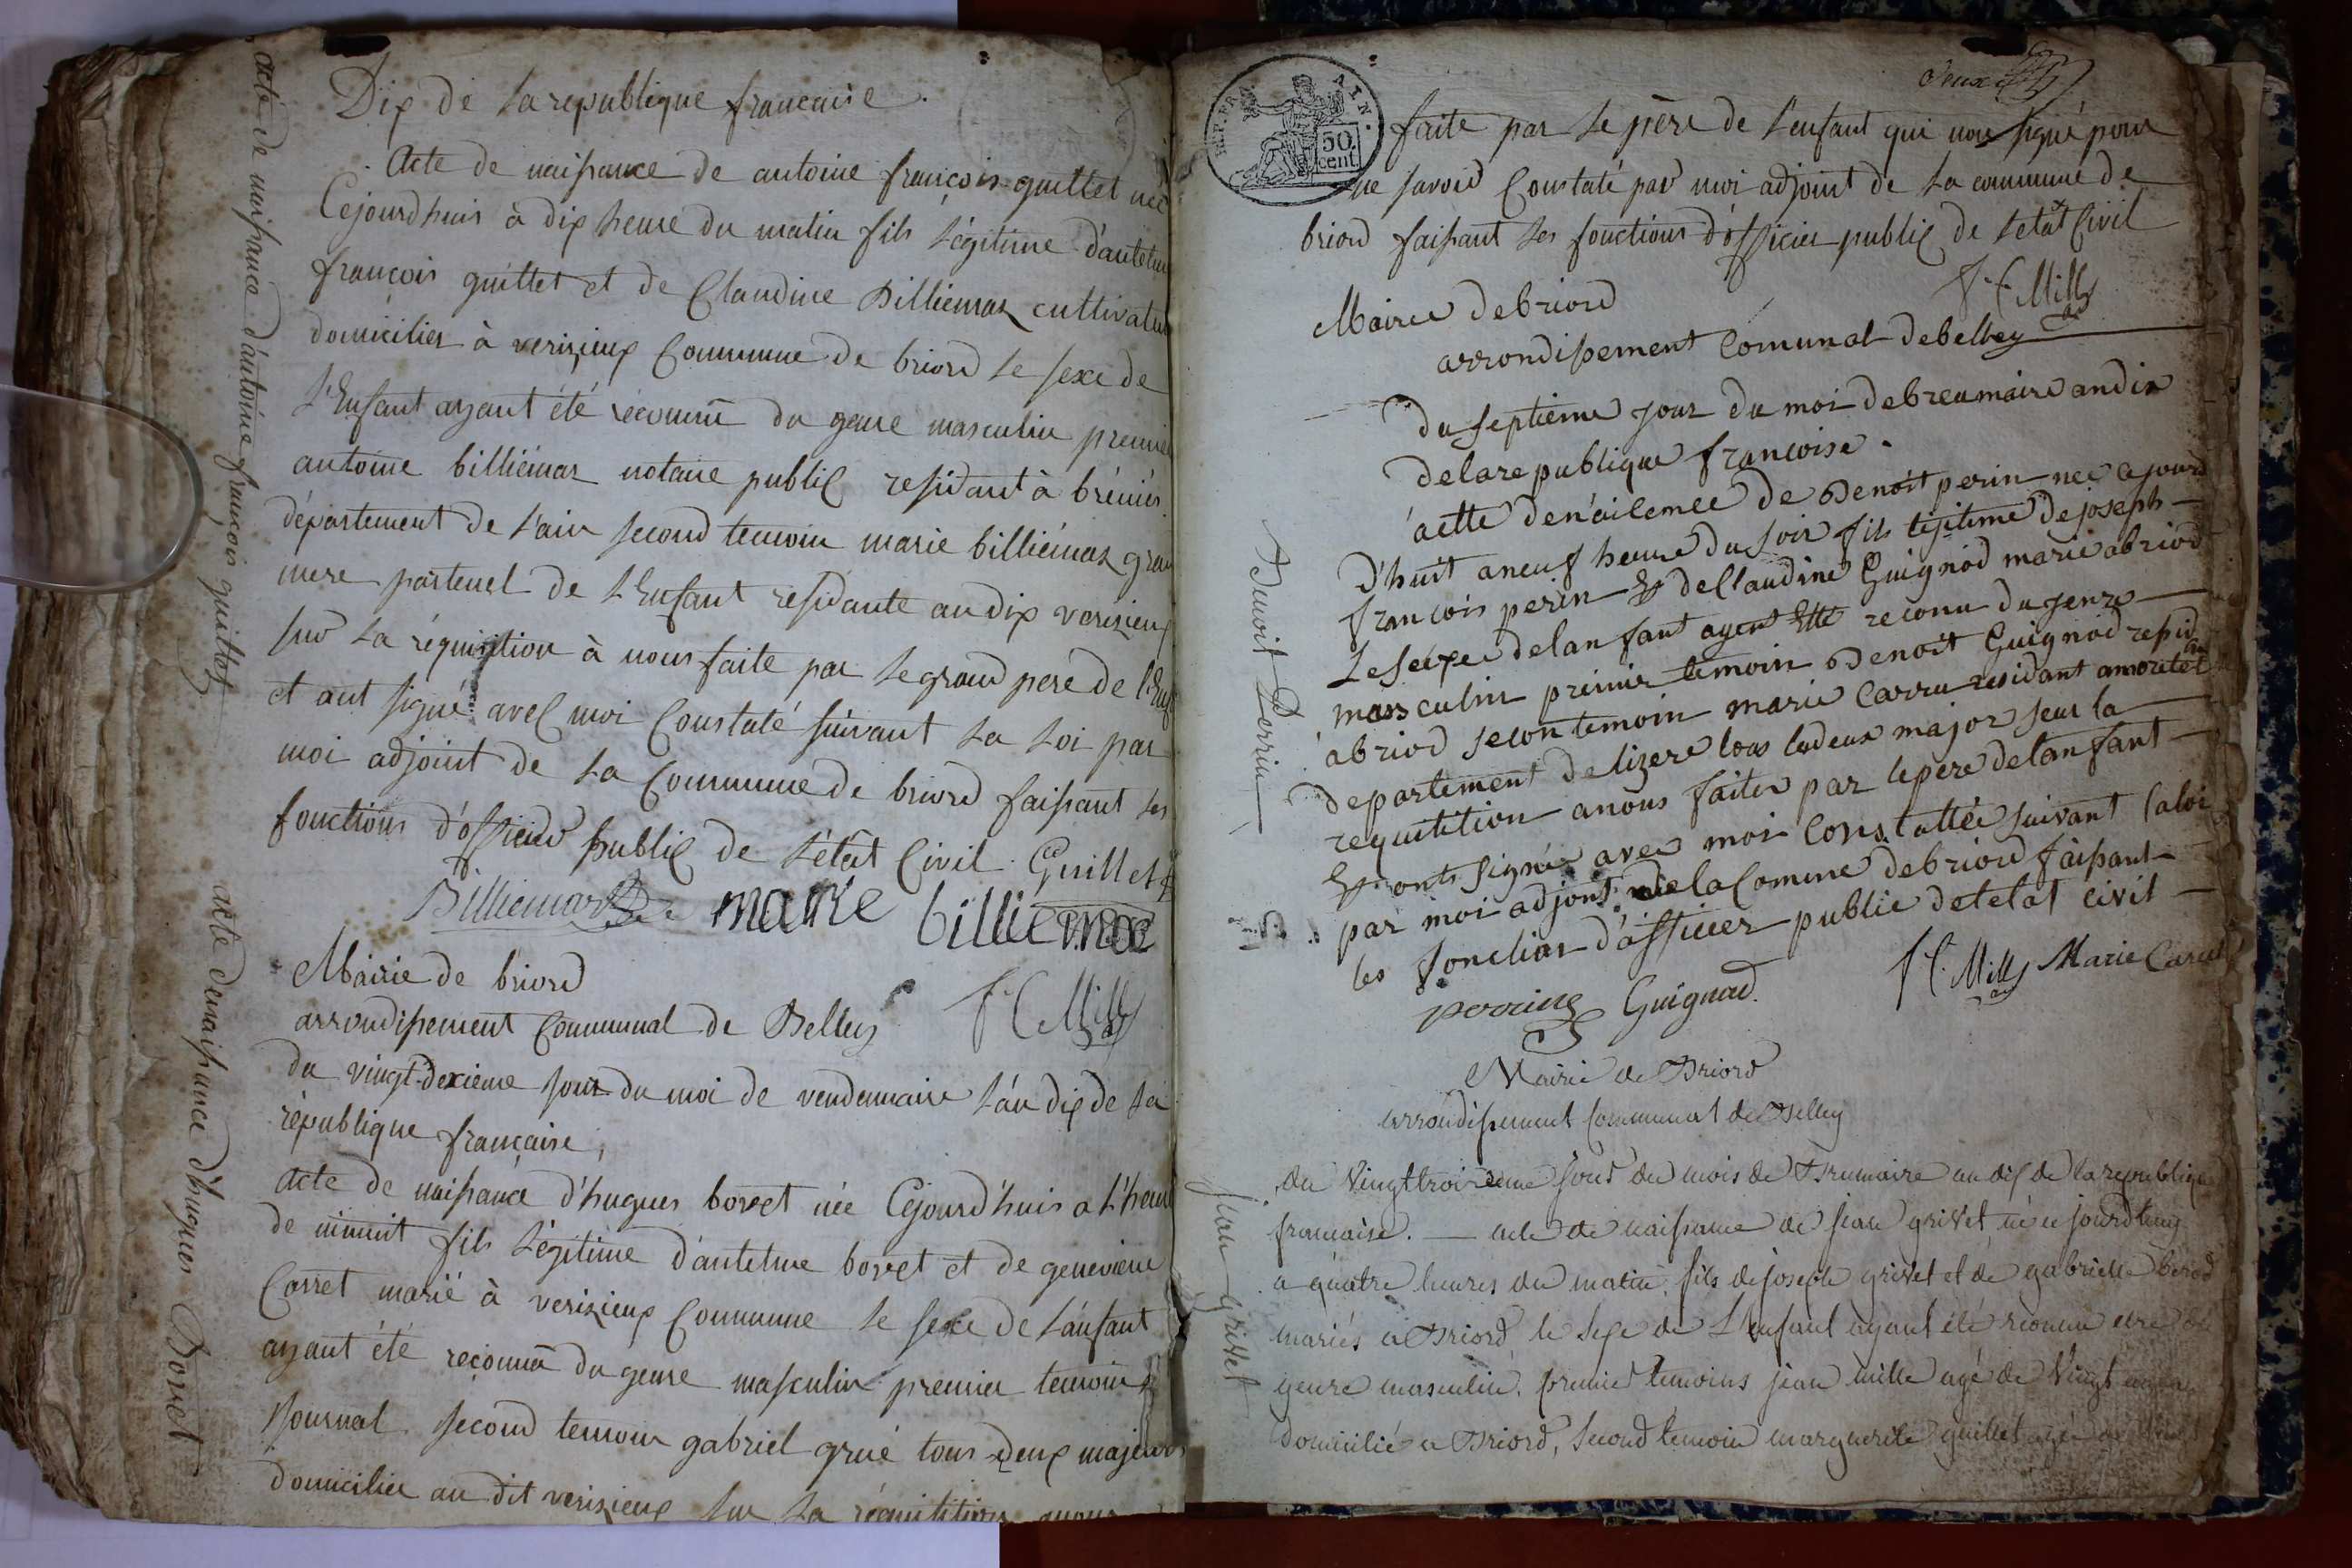 Dix de la republique francaise.
Acte de naissance de antoine françois guillet née
Cejourdhuis à dix heure du matin fils légitime d'antelme
françois guillet et de Claudine Billiemaz cultivateur
domicilier à verizieux Commune de briord le sexe de
L'Enfant ayant été reconnu du genre masculin premier
antoine billiémaz notaire public residant à
département de l'ain second temoin marie billiémaz gran
mere parternel de L'Enfant residante au dix verizieux
sur la réquisition à nous faite par le grand pere de l'Enf
et ont signé avec moi Constaté suivant la Loi par
moi adjoint de la Commune de briord faisant les
fonctions d'officier public de L'état Civil. Guillet
Billiemaz marie billiemaz
Mairie de briord
arrondissement Communal de Belley F C Mille
du vingt-dexieme jour du moi de vendemiaire L'an dix de la
république française,
Acte de naissance d'hugues bovet née Cejourd'huis a L'heure
de minuit fils Légitime d'antelme bovet et de genevieve
Carret marié à verizieux Commune le sexe de L'anfant
ayant été reconnu du genre masculin premier temoin
Journal second temoin gabriel grué tous deux majeurs
domicilier au dit verizieux sur la réquisition anous
acte de naissance d'antoine françois guillet
acte denaissance d'hugues Bovet
deux
REP. FRA. AIN.
50.
cent.
faite par le père de L'enfant qui non signé pour
ne savoir Constaté par moi adjoint de la commune de
briord faisant les fonctions d'officier public de L'etat Civil
F C Mille
Mairie de briord
arrondissement Comunal de belley
du septieme jour du moi de breumaire an dix
de la republique francoise.
actte de de Benoit perin nee cejourd
d'huit a neuf heure du soir fils lejitime de joseph
francois perin Et de Claudine Guignod marie a briod
Le sexe de lanfant ayent Ette reconu du genre
mass culin primier temoin Benoit Guignod resid
a briod secon temoin marie Carru residant amoretel
departement de lizere tous ledeux major seur la
requitition anous faiter par le pere de lanfant
Et onts signée avec moi Constattée suivant la loi
par moi adjont de la Comune de briord faisant
les fonclion d'officier public de letat civil
perrin Guignod. F C. Mille Marie Carret
Benoit Perrin
Mairie de Briord
arrondissement Communal de Belley
du Vingttroisieme jour du mois de Brumaire an dix de la republique
francaise. — acte de naissance de jean grivet, né ce jourdhuy
a quatre heures du matin, fils de joseph grivet et de gabrielle berod
mariés a Briord, le sexe de L'enfant ayant été reconnu etre du
genre masculin, premier temoins jean mille agé de Vingt
domicilié a Briord, Second temoin marguerite guillet agée de
jean grivet